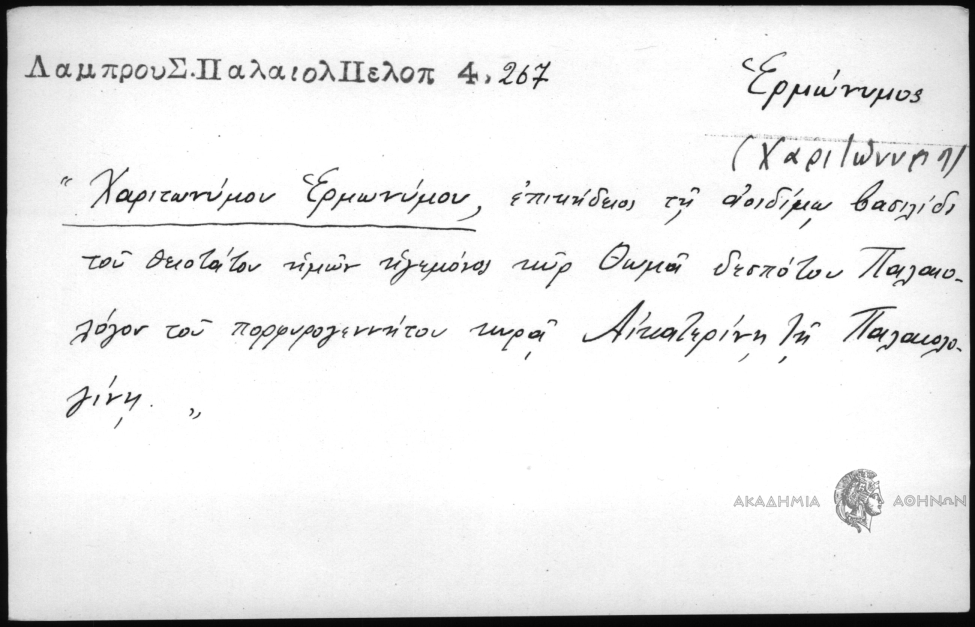 ΛαμπρουΣ.ΠαλαιολΠελοπ 4, 267
Ἑρμώνυμος
(Χαριτώνυμη)
„ Χαριτωνύμου Ἑρμωνύμου, ἐπικήδειος τῇ ἀοιδίμῳ βασιλίδι
τοῦ θειοτάτου ἡμῶν ἡγεμόνος κῦρ Θωμᾶ δεσπότου Παλαιο-
λόγου τοῦ πορφυρογεννήτου κυρᾷ Αἰκατερίνῃ τῇ Παλαιολο-
γίνῃ. „
ΑΚΑΔΗΜΙΑ ΑΘΗΝΩΝ